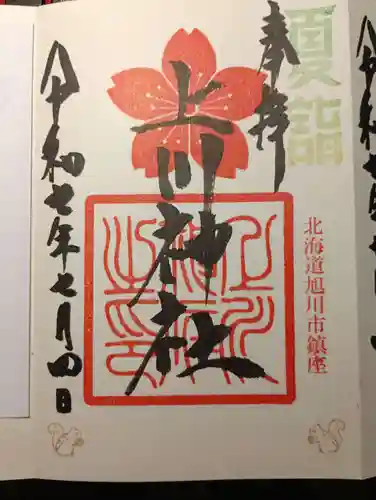 夏詣
奉拝
北海道旭川市鎮座
上川神社
上川神社之印
令和七年七月四日